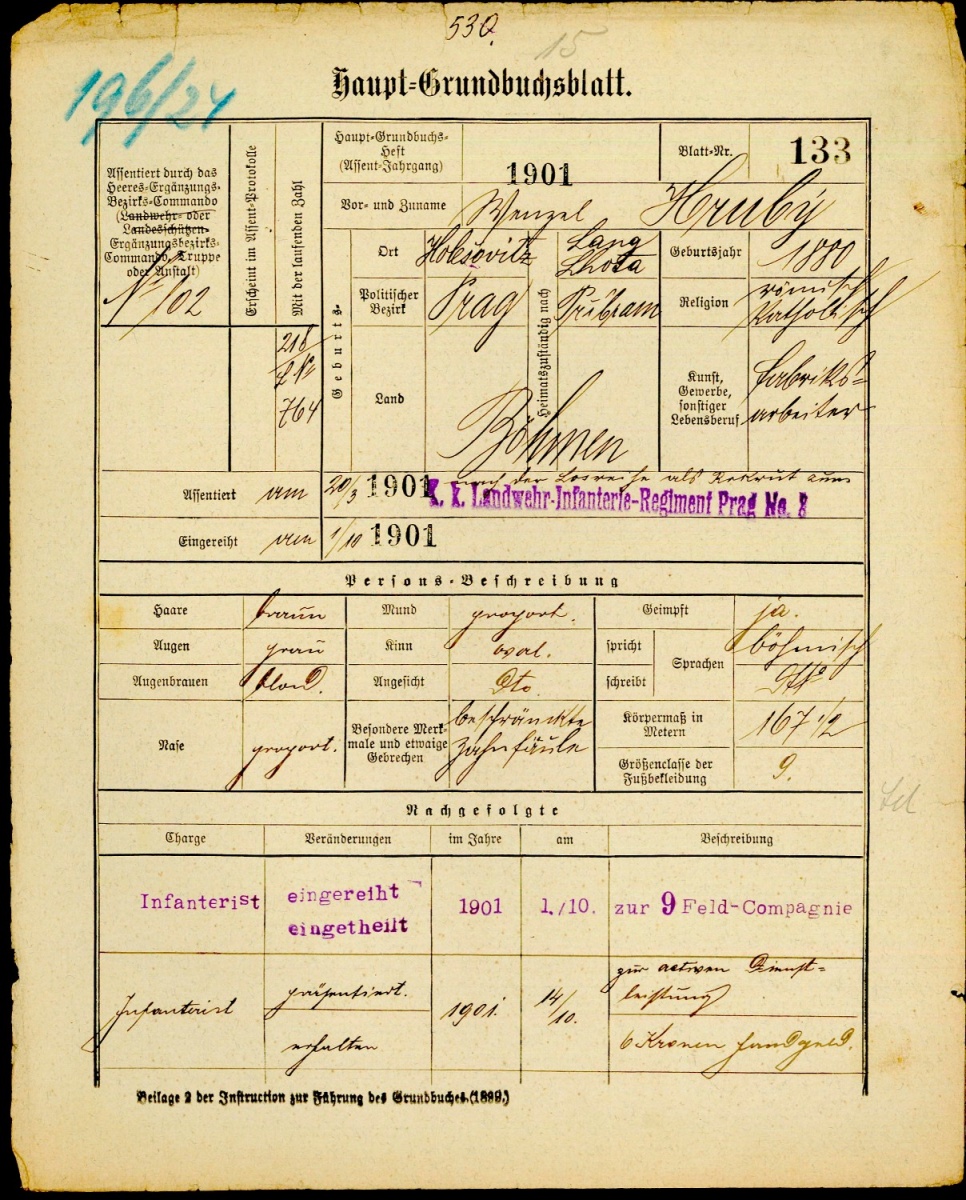 530.
15
196/21
Haupt-Grundbuchsblatt.
Assentiert durch das
Heeres-Ergänzungs-
Bezirks-Commando
(Landwehr- oder
Landesschützen-
Ergänzungsbezirks-
Commando, Truppe
oder Anstalt)
Erscheint im Assent-Protokolle
Mit der laufenden Zahl
Haupt-Grundbuchs-
Heft
(Assent-Jahrgang)
1901
Blatt-Nr.
133
Vor- und Zuname
Wenzel Hrubý
Geburts-
Ort
Holešovitz
Heimatszuständig nach
Lang
Lhota
Geburtsjahr
1880
Politischer
Bezirk
Prag
Přibram
Religion
römisch
Katholisch
No 102
218
764
Land
Böhmen
Kunst,
Gewerbe,
sonstiger
Lebensberuf
Fabriks-
arbeiter
Assentiert am 20/3 1901 nach der Losreihe als Rekrut zum
K. k. Landwehr-Infanterie-Regiment Prag No. 8
Eingereiht am 1/10 1901
Persons-Beschreibung
Haare braun Mund proport. Geimpft ja.
Augen grau Kinn oval. spricht Sprachen böhmisch
Augenbrauen blond. Angesicht Dto. schreibt dto
Nase proport.
Besondere Merk-
male und etwaige
Gebrechen
beschränckte
Zahnfäule
Körpermaß in
Metern
167 1/2
Größenclasse der
Fußbekleidung
9.
Nachgefolgte
Charge Veränderungen im Jahre am Beschreibung
Infanterist eingereiht
eingetheilt 1901 1./10. zur 9 Feld-Compagnie
Infanterist präsentiert. 1901. 14/10. zur activen Dienst-
leistung
erhalten 6 Kronen Handgeld.
Beilage 2 der Instruction zur Führung des Grundbuches (1899.)